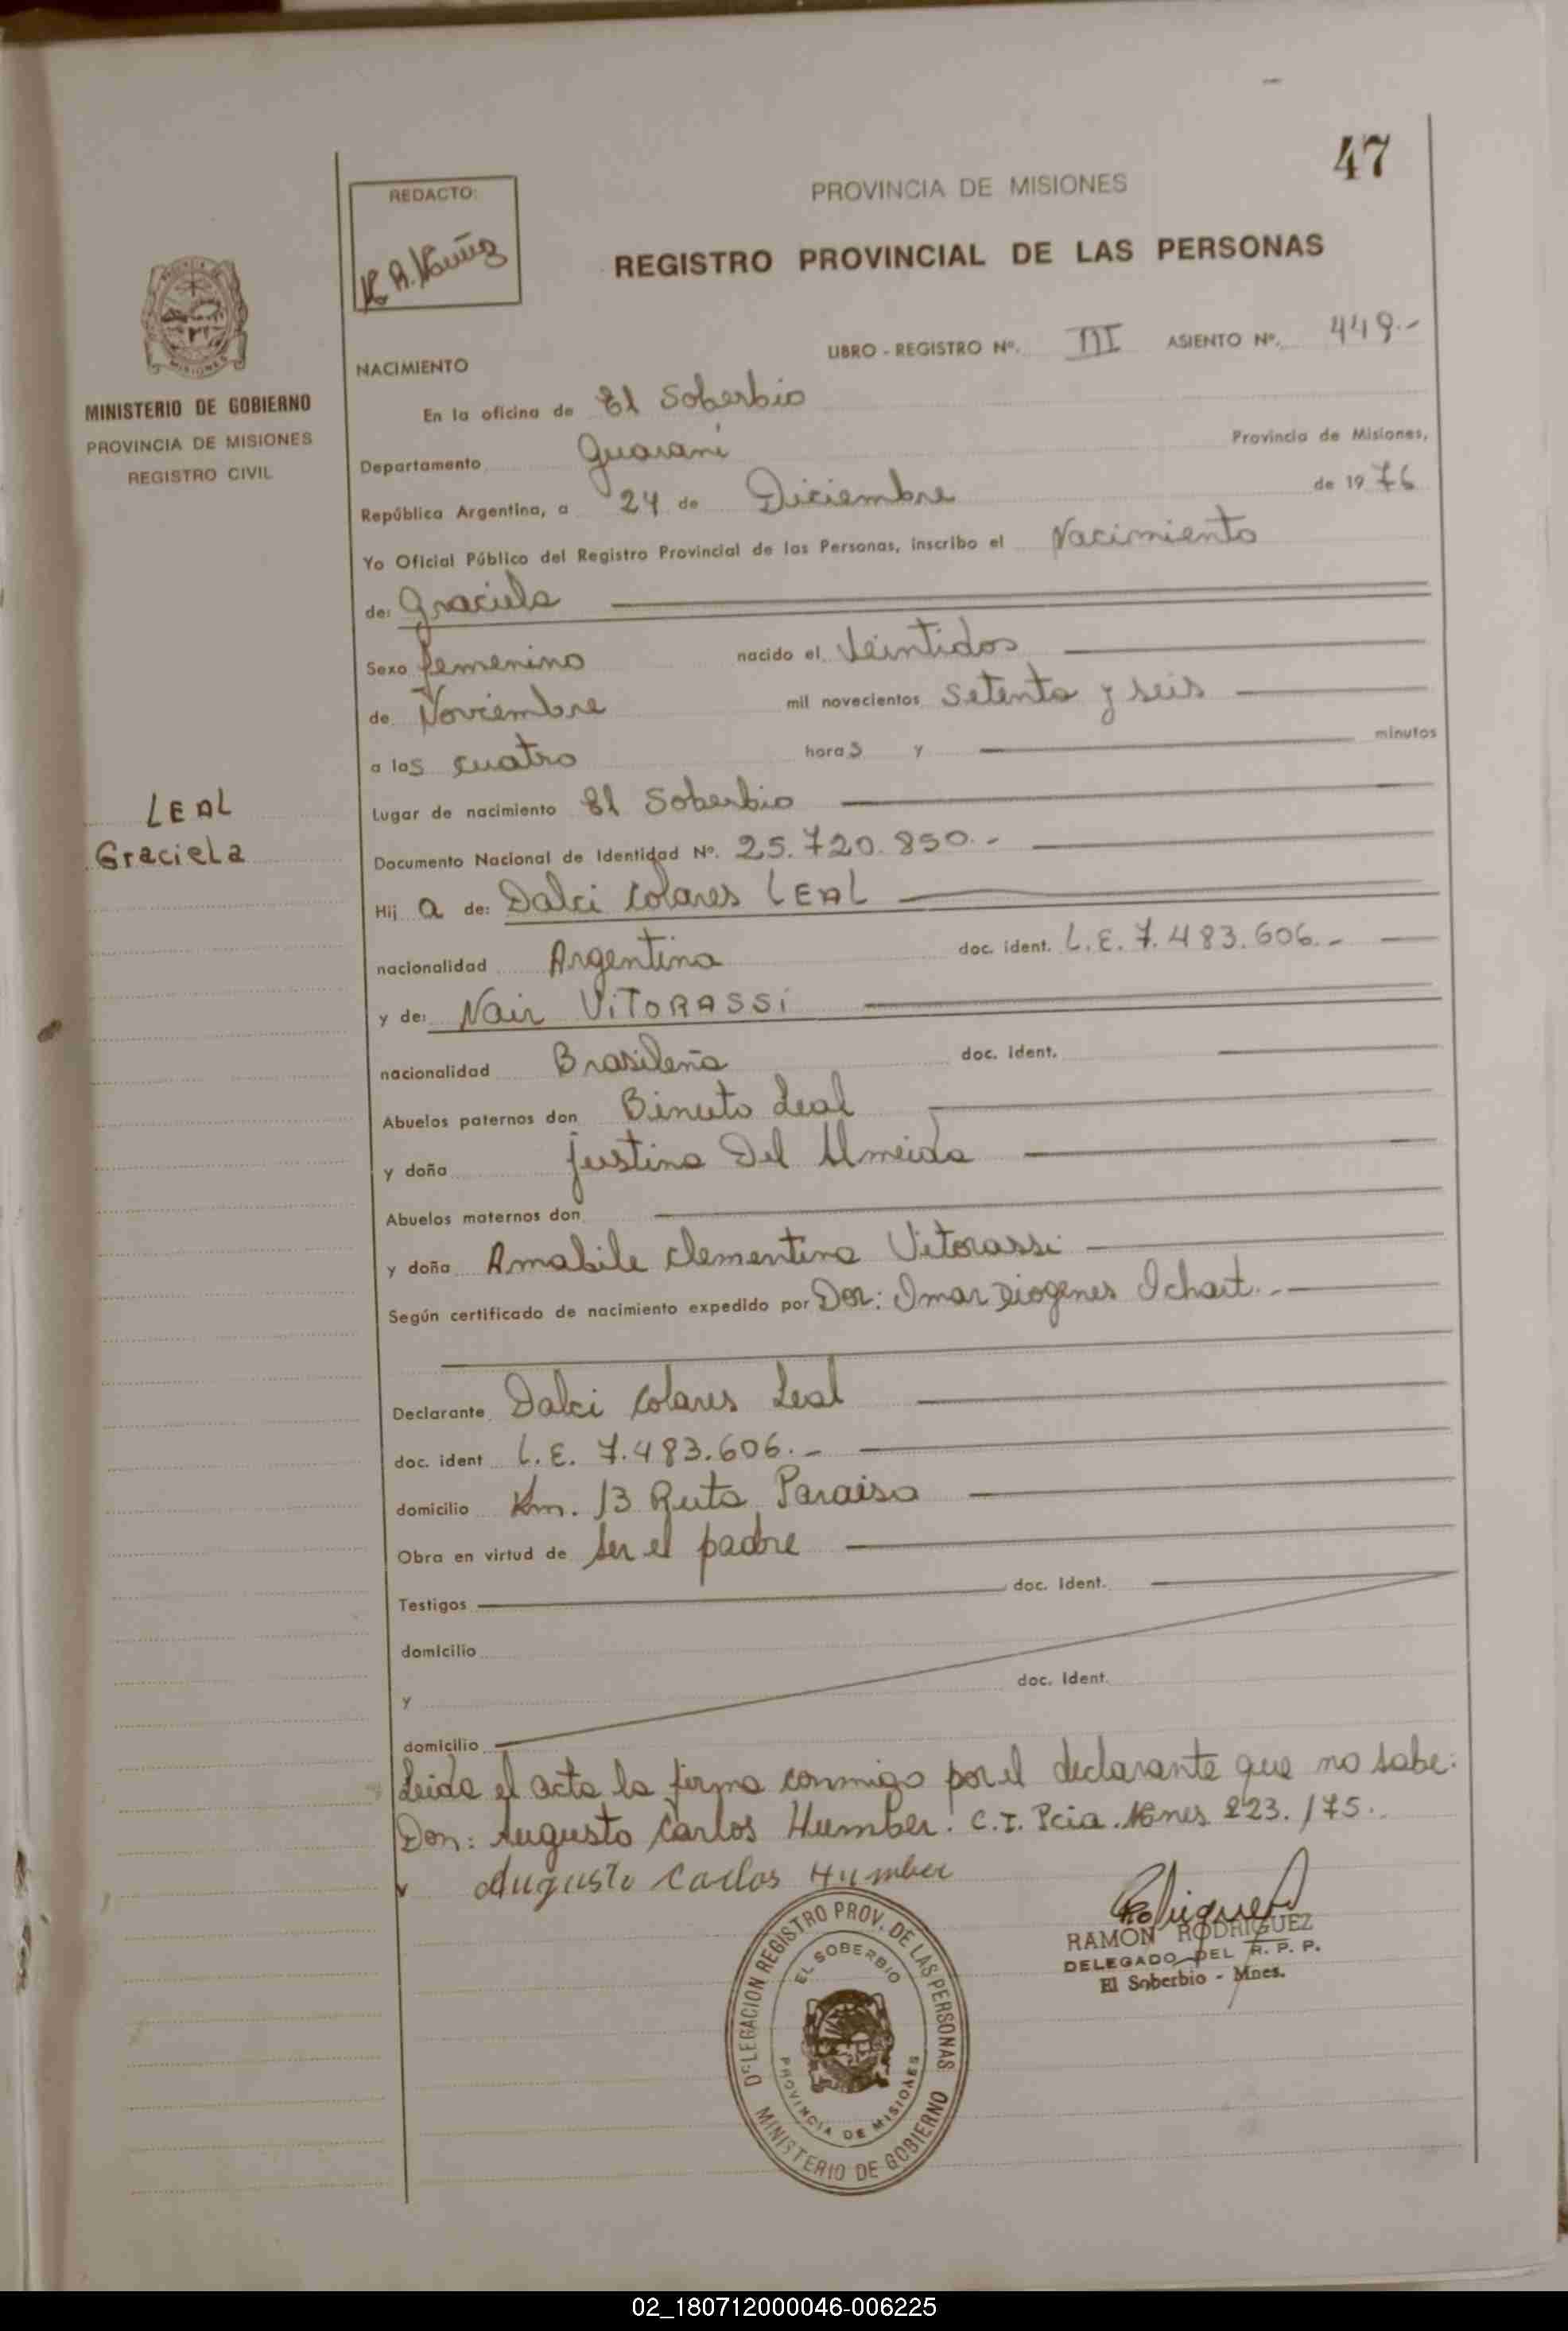 47
REDACTO:
PROVINCIA DE MISIONES
REGISTRO PROVINCIAL DE LAS PERSONAS
MINISTERIO DE GOBIERNO
PROVINCIA DE MISIONES
REGISTRO CIVIL
LIBRO - REGISTRO Nº. III ASIENTO Nº. 449.-
NACIMIENTO
En la oficina de El Soberbio
Departamento Guaraní Provincia de Misiones,
República Argentina, a 24 de Diciembre de 1976
Yo Oficial Público del Registro Provincial de las Personas, inscribo el Nacimiento
de: Graciela
Sexo femenino nacido el Veintidos
de Noviembre mil novecientos setenta y seis
a las cuatro horas y minutos
Lugar de nacimiento El Soberbio
LEAL
Graciela
Documento Nacional de Identidad Nº. 25.720.850.-
Hij a de: Dalci Colares LEAL
nacionalidad Argentina doc. ident. L.E. 7.483.606.-
y de: Nair ViTORASSi
nacionalidad Brasileña doc. ident.
Abuelos paternos don Binuto Leal
y doña Justina Del Almeida
Abuelos maternos don
y doña Amabile Clementina Vitorassi
Según certificado de nacimiento expedido por Dor: Omar Diogenes Ichart.-
Declarante Dalci Colares Leal
doc. ident L.E. 7.483.606.-
domicilio Km. 13 Ruta Paraiso
Obra en virtud de ser el padre
Testigos doc. Ident.
domicilio
y doc. Ident.
domicilio
Leida el acta la firma conmigo por el declarante que no sabe:
Don: Augusto Carlos Humber. C.I. Pcia. Mnes 223.175.
Augusto Carlos Humber
RAMON RODRIGUEZ
DELEGADO DEL R. P. P.
El Soberbio - Mnes.
DELEGACION REGISTRO PROV. DE LAS PERSONAS
EL SOBERBIO
PROVINCIA DE MISIONES
MINISTERIO DE GOBIERNO
02_180712000046-006225